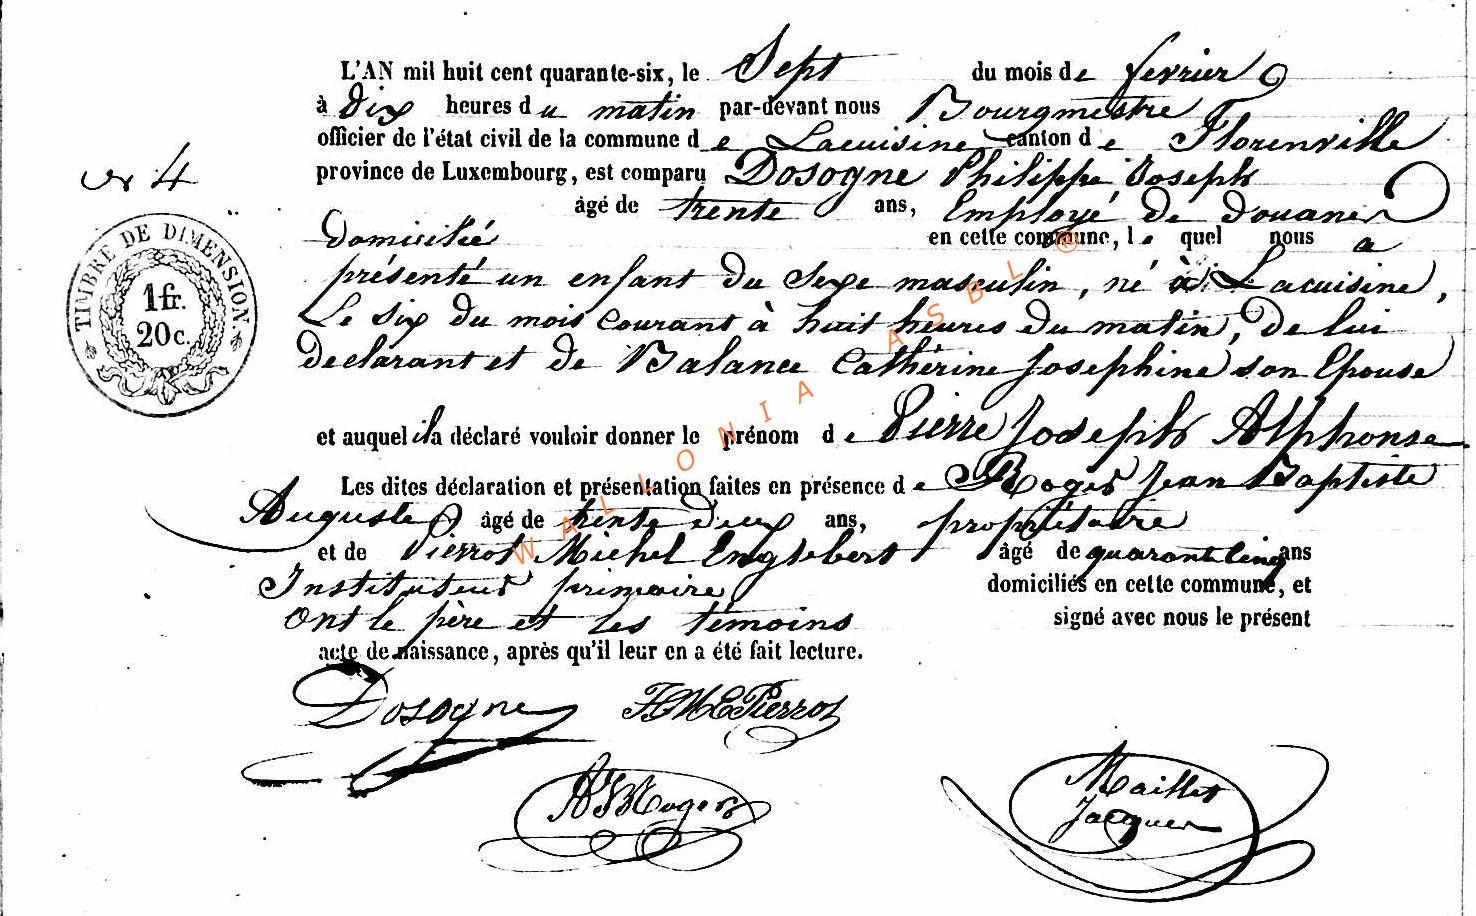 L'AN mil huit cent quarante-six, le Sept du mois de fevrier
à dix heures du matin par-devant nous Bourgmestre
officier de l'état civil de la commune de Lacuisine canton de Florenville
province de Luxembourg, est comparu Dosogne Philippe Joseph
âgé de trente ans, Employé de douanes
domicilié en cette commune, lequel nous a
présenté un enfant du sexe masculin, né à Lacuisine,
Le six du mois courant à huit heures du matin, de lui
declarant et de Balance Cathérine Josephine son Epouse
et auquel il a déclaré vouloir donner le prénom de Pierre Joseph Alphonse
Les dites déclaration et présentation faites en présence de Roger Jean Baptiste
Auguste âgé de trente deux ans, propriétaire
et de Pierrot Michel Englebert âgé de quarante cinq ans
Instituteur primaire domiciliés en cette commune, et
ont le père et les témoins signé avec nous le présent
acte de naissance, après qu'il leur en a été fait lecture.
N 4
TIMBRE DE DIMENSION.
1 fr.
20 c.
Dosogne
Pierrot
Roger
Maillet
Jacques
WALLONIA ASBL ®